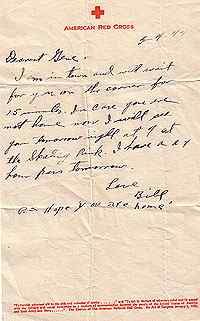 AMERICAN RED CROSS
Dearest Gene:
I am in town and will wait
for you on the corner for
15 minutes. In case you are
not home now I will see
your tomorrow night at 7 at
the Skating Rink. I have a 24
hour pass tomorrow.
Love
Bill
P.S. Hope you are home"